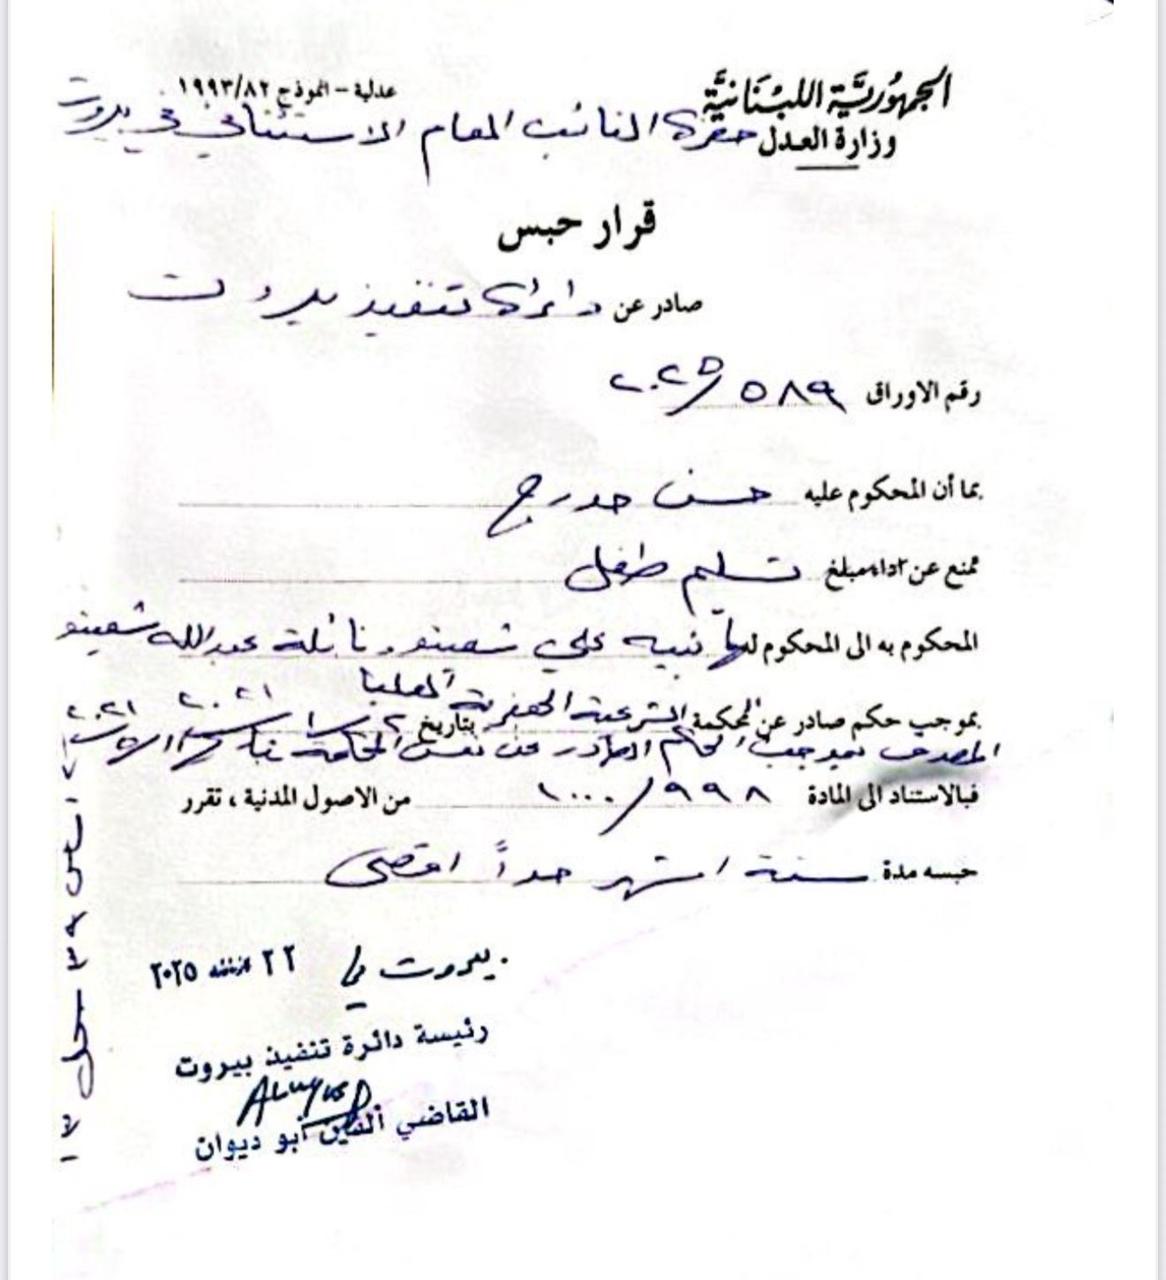 الجمهورية اللبنانية
وزارة العدل
عدلية - انموذج ١٩٩٣/٨٢
حضرة النائب العام الاستئنافي في بيروت
قرار حبس
صادر عن دائرة تنفيذ بيروت
رقم الاوراق ٥٨٩/٢٠٢٥
بما أن المحكوم عليه حسن حدرج
ممتنع عن تسليم طفل
المحكوم به الى المحكوم لها نبيه علي شعيتو. نائلة عبدالله شعيتو
بموجب حكم صادر عن المحكمة الشرعية الجعفرية العليا بتاريخ ٢٠٢١
المصدق بموجب الحكم الصادر عن نفس المحكمة ٢٠٢١
فبالاستناد الى المادة ٩٩٨/١٠٠٠ من الاصول المدنية ، تقرر
حبسه مدة ستة اشهر حداً اقصى
بيروت في ٢٢ ٢٠٢٥
رئيسة دائرة تنفيذ بيروت
القاضي ألفين أبو ديوان
اساس ٣٩ سجل